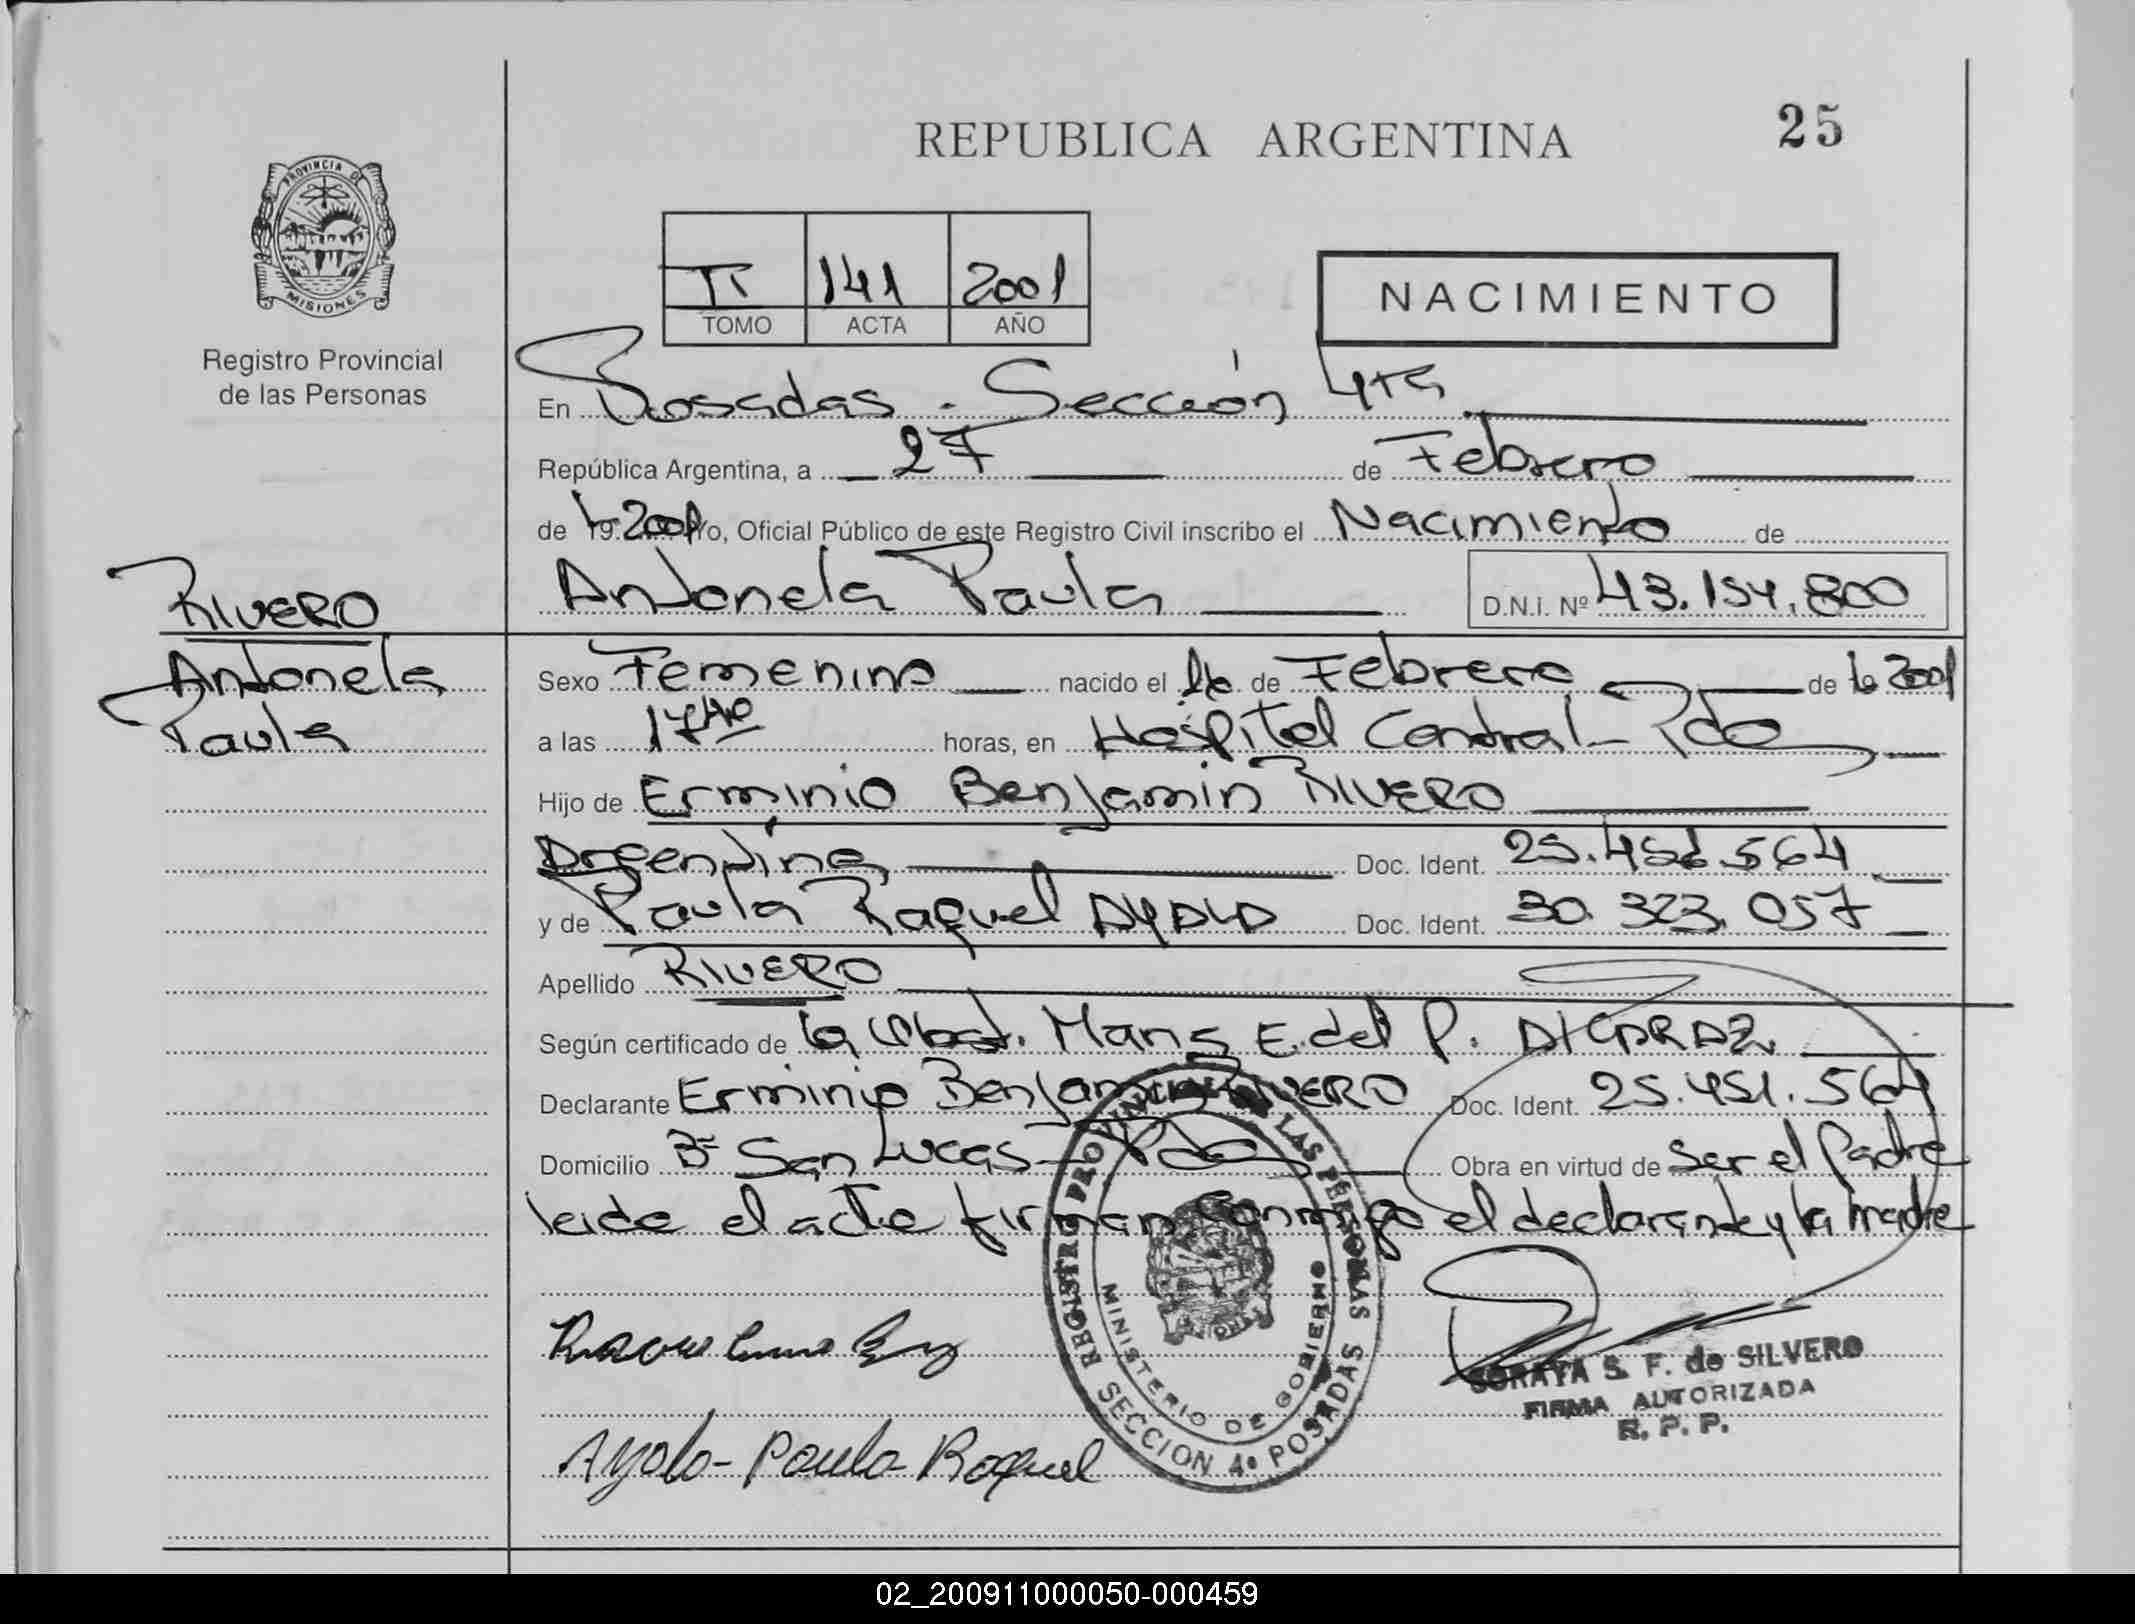 25
REPUBLICA ARGENTINA
PROVINCIA DE
MISIONES
Registro Provincial
de las Personas
II 141 2001
TOMO ACTA AÑO
NACIMIENTO
En Posadas - Sección 4ta
República Argentina, a 27 de Febrero
de 19 2001 Yo, Oficial Público de este Registro Civil inscribo el Nacimiento de
Antonela Paula D.N.I. Nº 43.154.800
RIVERO
Antonela
Paula
Sexo Femenino nacido el de Febrero de 2001
a las 17 horas, en Hospital Central - Pdas
Hijo de Erminio Benjamin RIVERO
Argentina Doc. Ident. 25.451.564
y de Paula Raquel AYALA Doc. Ident. 30.323.057
Apellido RIVERO
Según certificado de la Obst. Maria E. del P. ALCARAZ
Declarante Erminio Benjamin RIVERO Doc. Ident. 25.451.564
Domicilio Bº San Lucas - Pdas Obra en virtud de ser el Padre
leida el acta firman conmigo el declarante y la madre
REGISTRO PROVINCIAL DE LAS PERSONAS
MINISTERIO DE GOBIERNO
SECCION 4º POSADAS
SORAYA S. F. de SILVERO
FIRMA AUTORIZADA
R. P. P.
Ayala - Paula Raquel
02_200911000050-000459